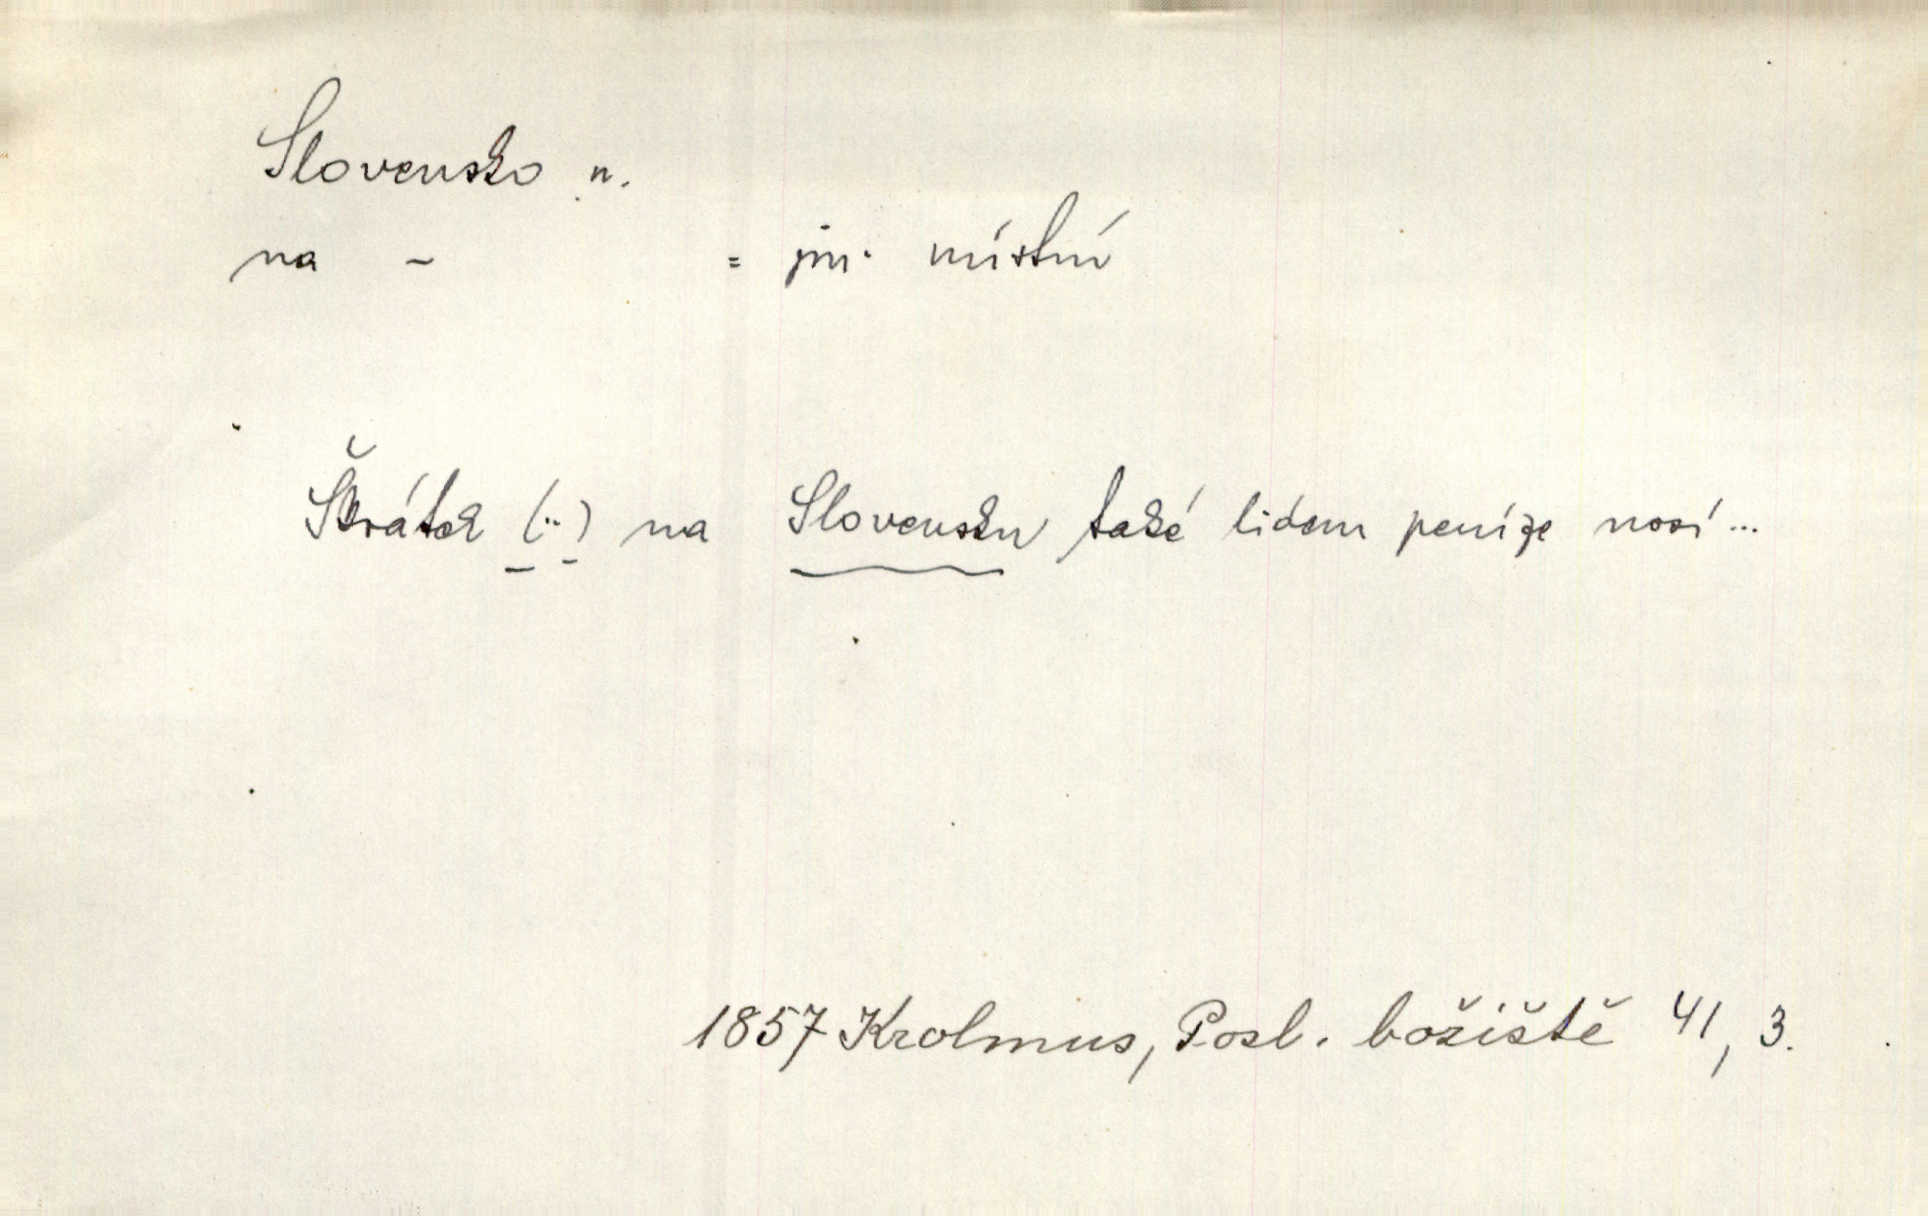 Slovensko n.
na - = jm. místní
Škrátek (..) na Slovensku také lidem peníze nosí...
1857 Krolmus, Posl. božiště 41, 3.